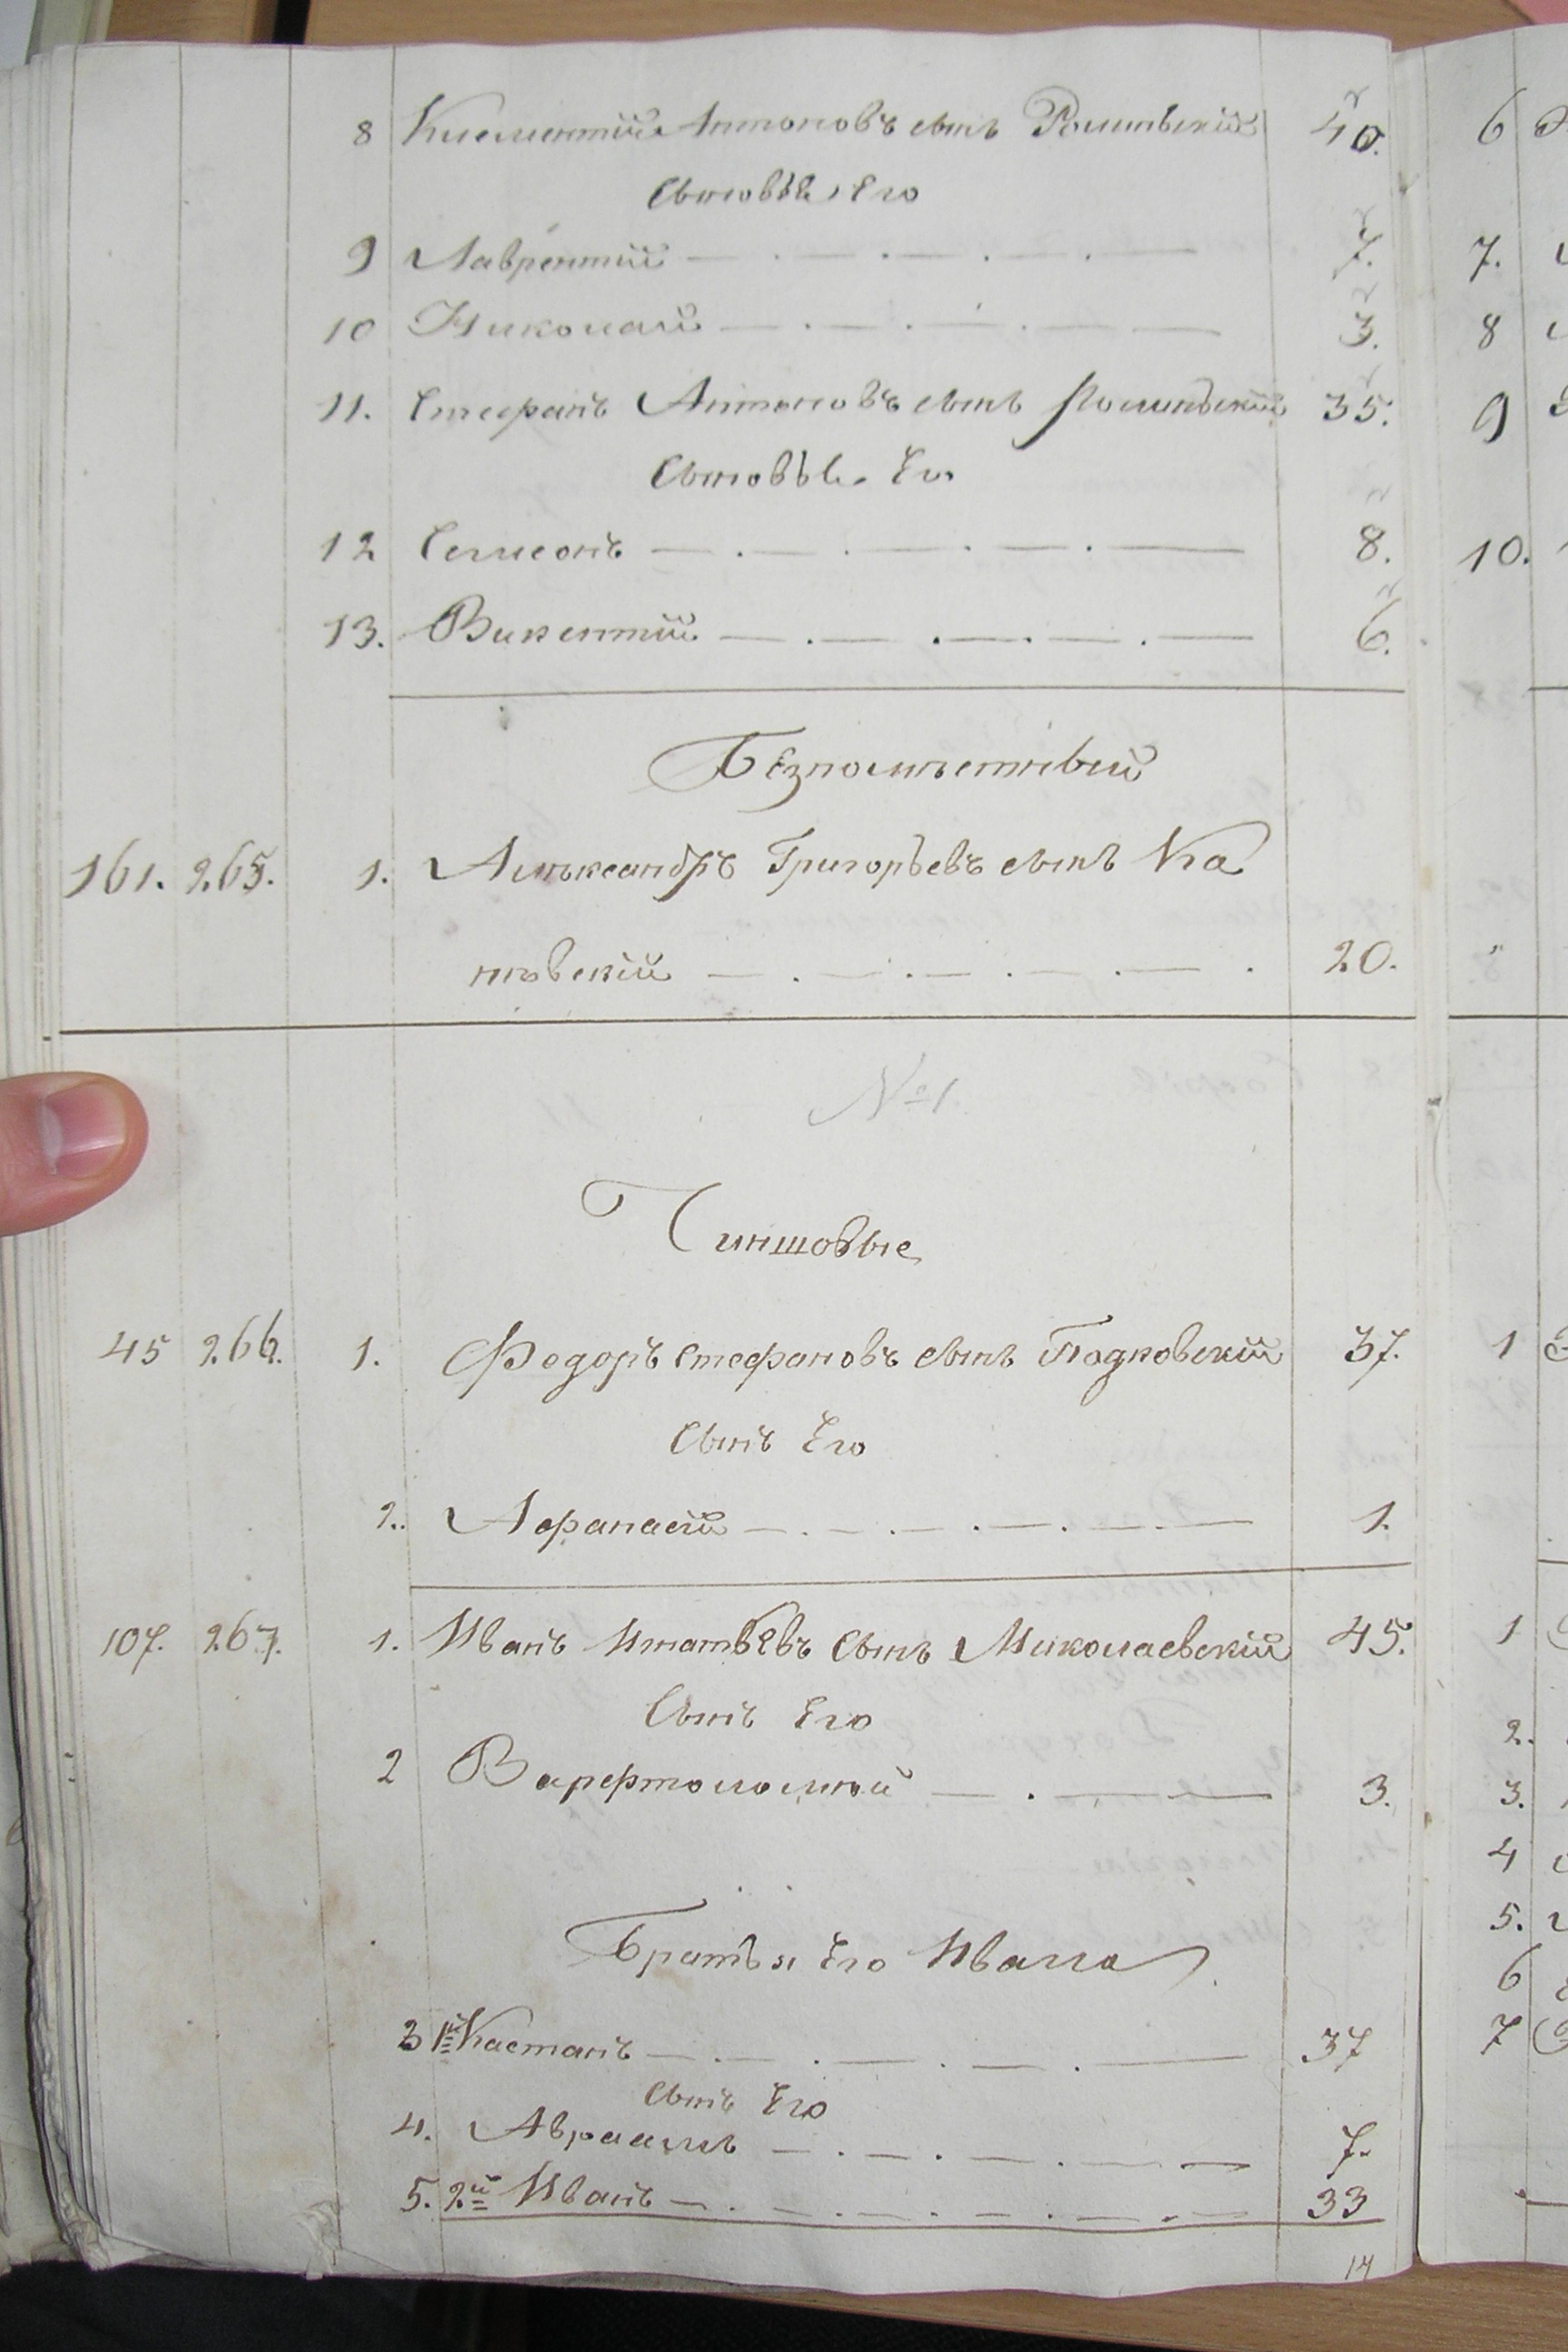 8 Климентий Антоновъ сынъ Роминьский 40.
Сыновья Его
9 Лаврентий — . — . — . — . — 7.
10 Николай — . — . — . — — 3.
11. Стефанъ Антоновъ сынъ Роминьский 35.
Сыновья Его
12 Семеонъ — . — . — . — . — 8.
13. Викентий — . — . — . — . — 6.
Безпоместный
161. 265. 1. Александръ Григорьевъ сынъ Ка
невский — . — . — . — . — . 20.
№1.
Чиншовые
45 266. 1. Федоръ Стефановъ сынъ Подковский 37.
Сынъ Его
2. Афанасий — . — . — . — . — . — 1.
107. 267. 1. Иванъ Игнатьевъ Сынъ Миколаевский 45.
Сынъ Его
2 Варфтоломей — . — — 3.
Братья Его Ивана
3 1й Кастанъ — . — . — . — . — 37
Сынъ Его
4. Авраамъ — . — . — . — — 7.
5. 2й Иванъ — . — . — . — . — . — 33
14
6
7.
8
9
10.
1
1
2.
3.
4
5.
6
7